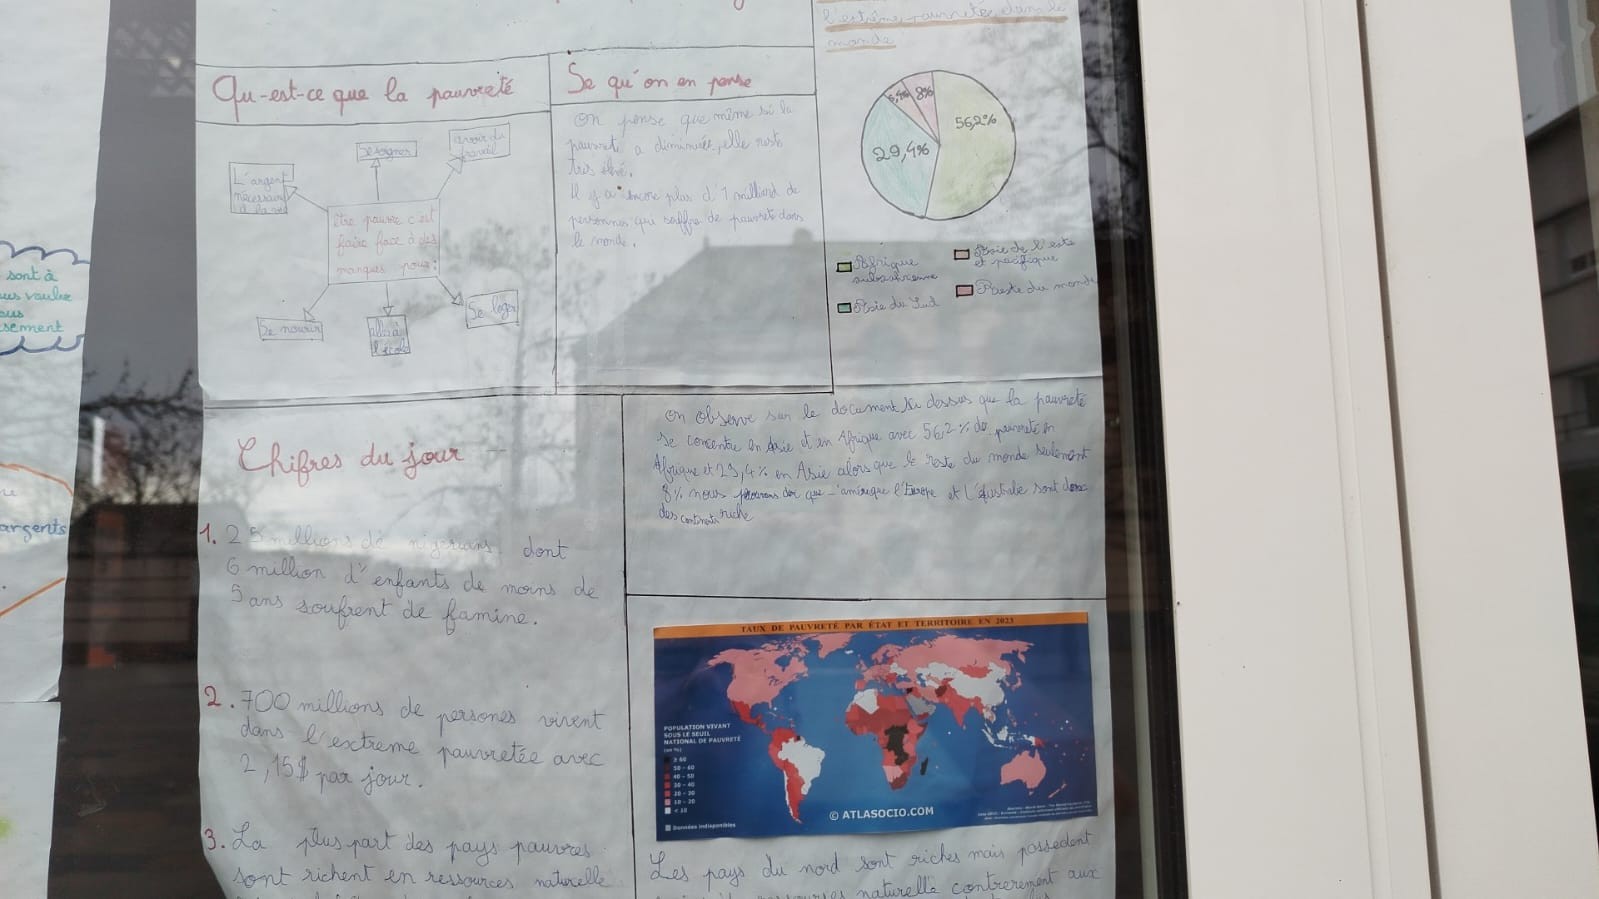 l'extrême pauvretée dans le
monde
Qu-est-ce que la pauvreté
Se qu'on en pense
se soigner
avoir du
travail
L'argent
nécessaire
à la vie
être pauvre c'est
faire face à des
manques pour:
Se nourir
aller à
l'école
Se loger
On pense que même si la
pauvreté a diminuée, elle reste
très élevé.
Il y a encore plus d'1 milliard de
personnes qui souffre de pauvreté dans
le monde.
8%
56,2%
29,4%
Afrique
subsaharienne
Asie du Sud
Asie de l'este
et pacifique
Reste du monde
sont à
sement
argents
Chifres du jour
1. 25 millions de nigerians dont
6 million d'enfants de moins de
5 ans soufrent de famine.
2. 700 millions de persones vivent
dans l'extreme pauvretée avec
2,15$ par jour.
3. La plus part des pays pauvres
sont richent en ressources naturelle
on observe sur le document si dessus que la pauvreté
se concentre en Asie et en Afrique avec 56,2% de pauvreté en
Afrique et 29,4% en Asie alors que le reste du monde seulement
8% nous pouvons dir que l'amérique l'Europe et l'Australie sont donc
des continents riche
TAUX DE PAUVRETÉ PAR ÉTAT ET TERRITOIRE EN 2023
POPULATION VIVANT
SOUS LE SEUIL
NATIONAL DE PAUVRETÉ
(en %)
≥ 60
50 - 60
40 - 50
30 - 40
20 - 30
10 - 20
< 10
Données indisponibles
© ATLASOCIO.COM
Les pays du nord sont riches mais possèdent
naturelle contrerement aux